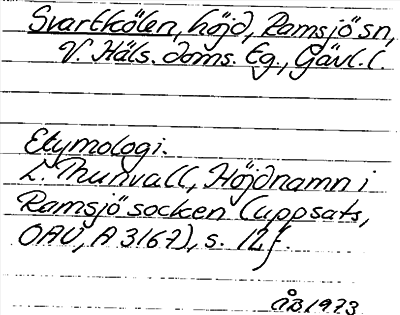 Svartkölen, höjd, Ramsjö sn,
V. Häls. doms. tg., Gävl. l.
Etymologi.
L. Thunvall, Höjdnamn i
Ramsjö socken (uppsats,
OAU, A 3167), s. 12f.
ÅB 1973